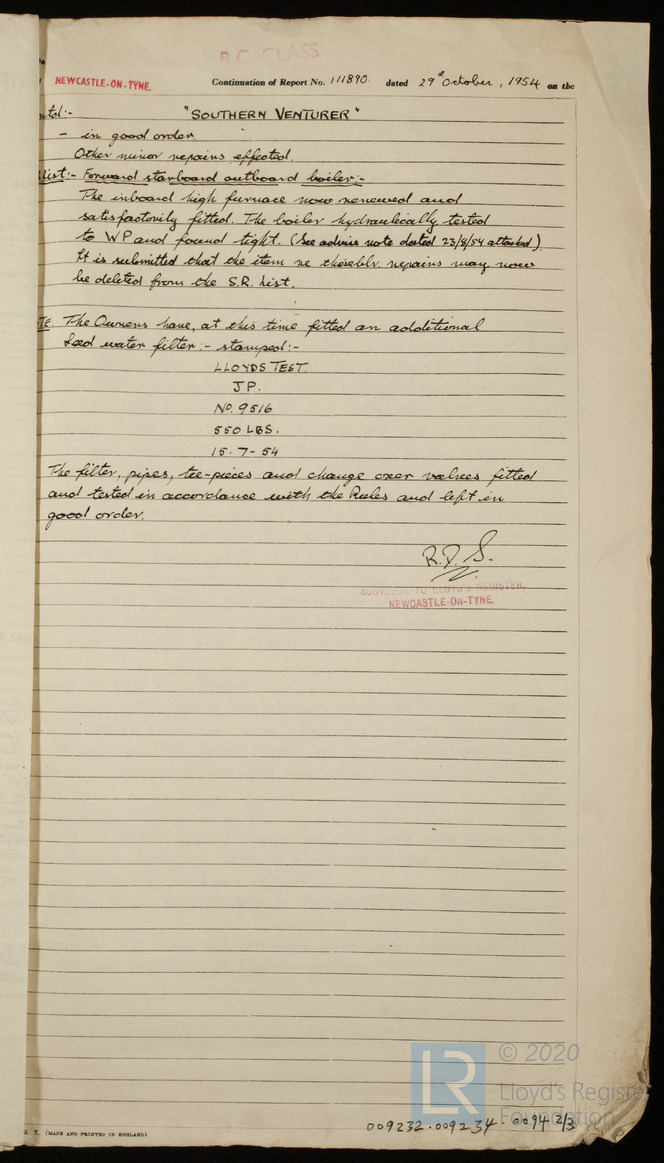 B.C. CLASS
NEWCASTLE-ON-TYNE. Continuation of Report No. 111890. dated 29th October, 1954 on the
"SOUTHERN VENTURER"
- in good order
Other minor repairs effected.
List:- Forward starboard outboard boiler:-
The inboard high furnace now renewed and
satisfactorily fitted. The boiler hydraulically tested
to WP and found tight. (See advice note dated 23/8/54 attached).
It is submitted that the item re these blr. repairs may now
be deleted from the S.R. List.
TE. The Owners have, at this time fitted an additional
feed water filter:- stamped:-
LLOYDS TEST.
JP.
No. 9516
550 LBS.
15-7-54
The filter, pipes, tee-pieces and change over valves fitted
and tested in accordance with the Rules and left in
good order.
SURVEYOR TO LLOYD'S REGISTER,
NEWCASTLE-ON-TYNE.
LR © 2020
Lloyd's Register
Foundation
009232-009234-0094 2/3
T. (MADE AND PRINTED IN ENGLAND)